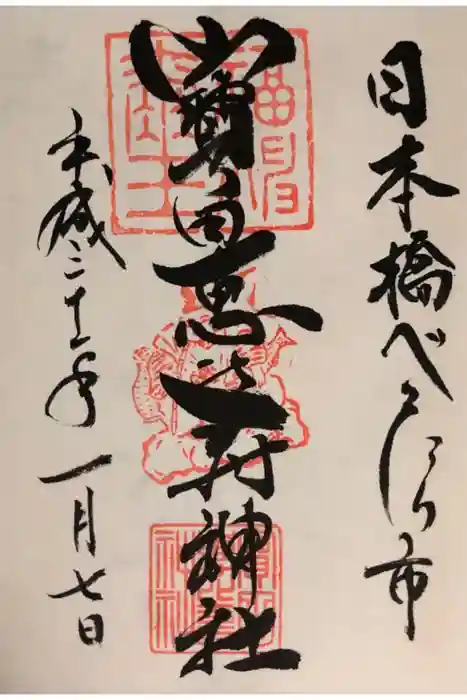 日本橋べったら市
寶田恵比寿神社
平成三十一年一月七日